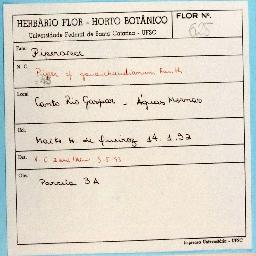 HERBÁRIO FLOR - HORTO BOTÂNICO
Universidade Federal de Santa Catarina - UFSC
FLOR Nº.
625
Fam. Piperaceae
N. C.
Piper cf gaudichaudianum Kunth
Local
Canto Rio Gaspar - Águas Mornas
Col.
H. de Queiroz 14.1.92
Det.
5.93
Obs.
Parcela 3A
Imprensa Universitária - UFSC